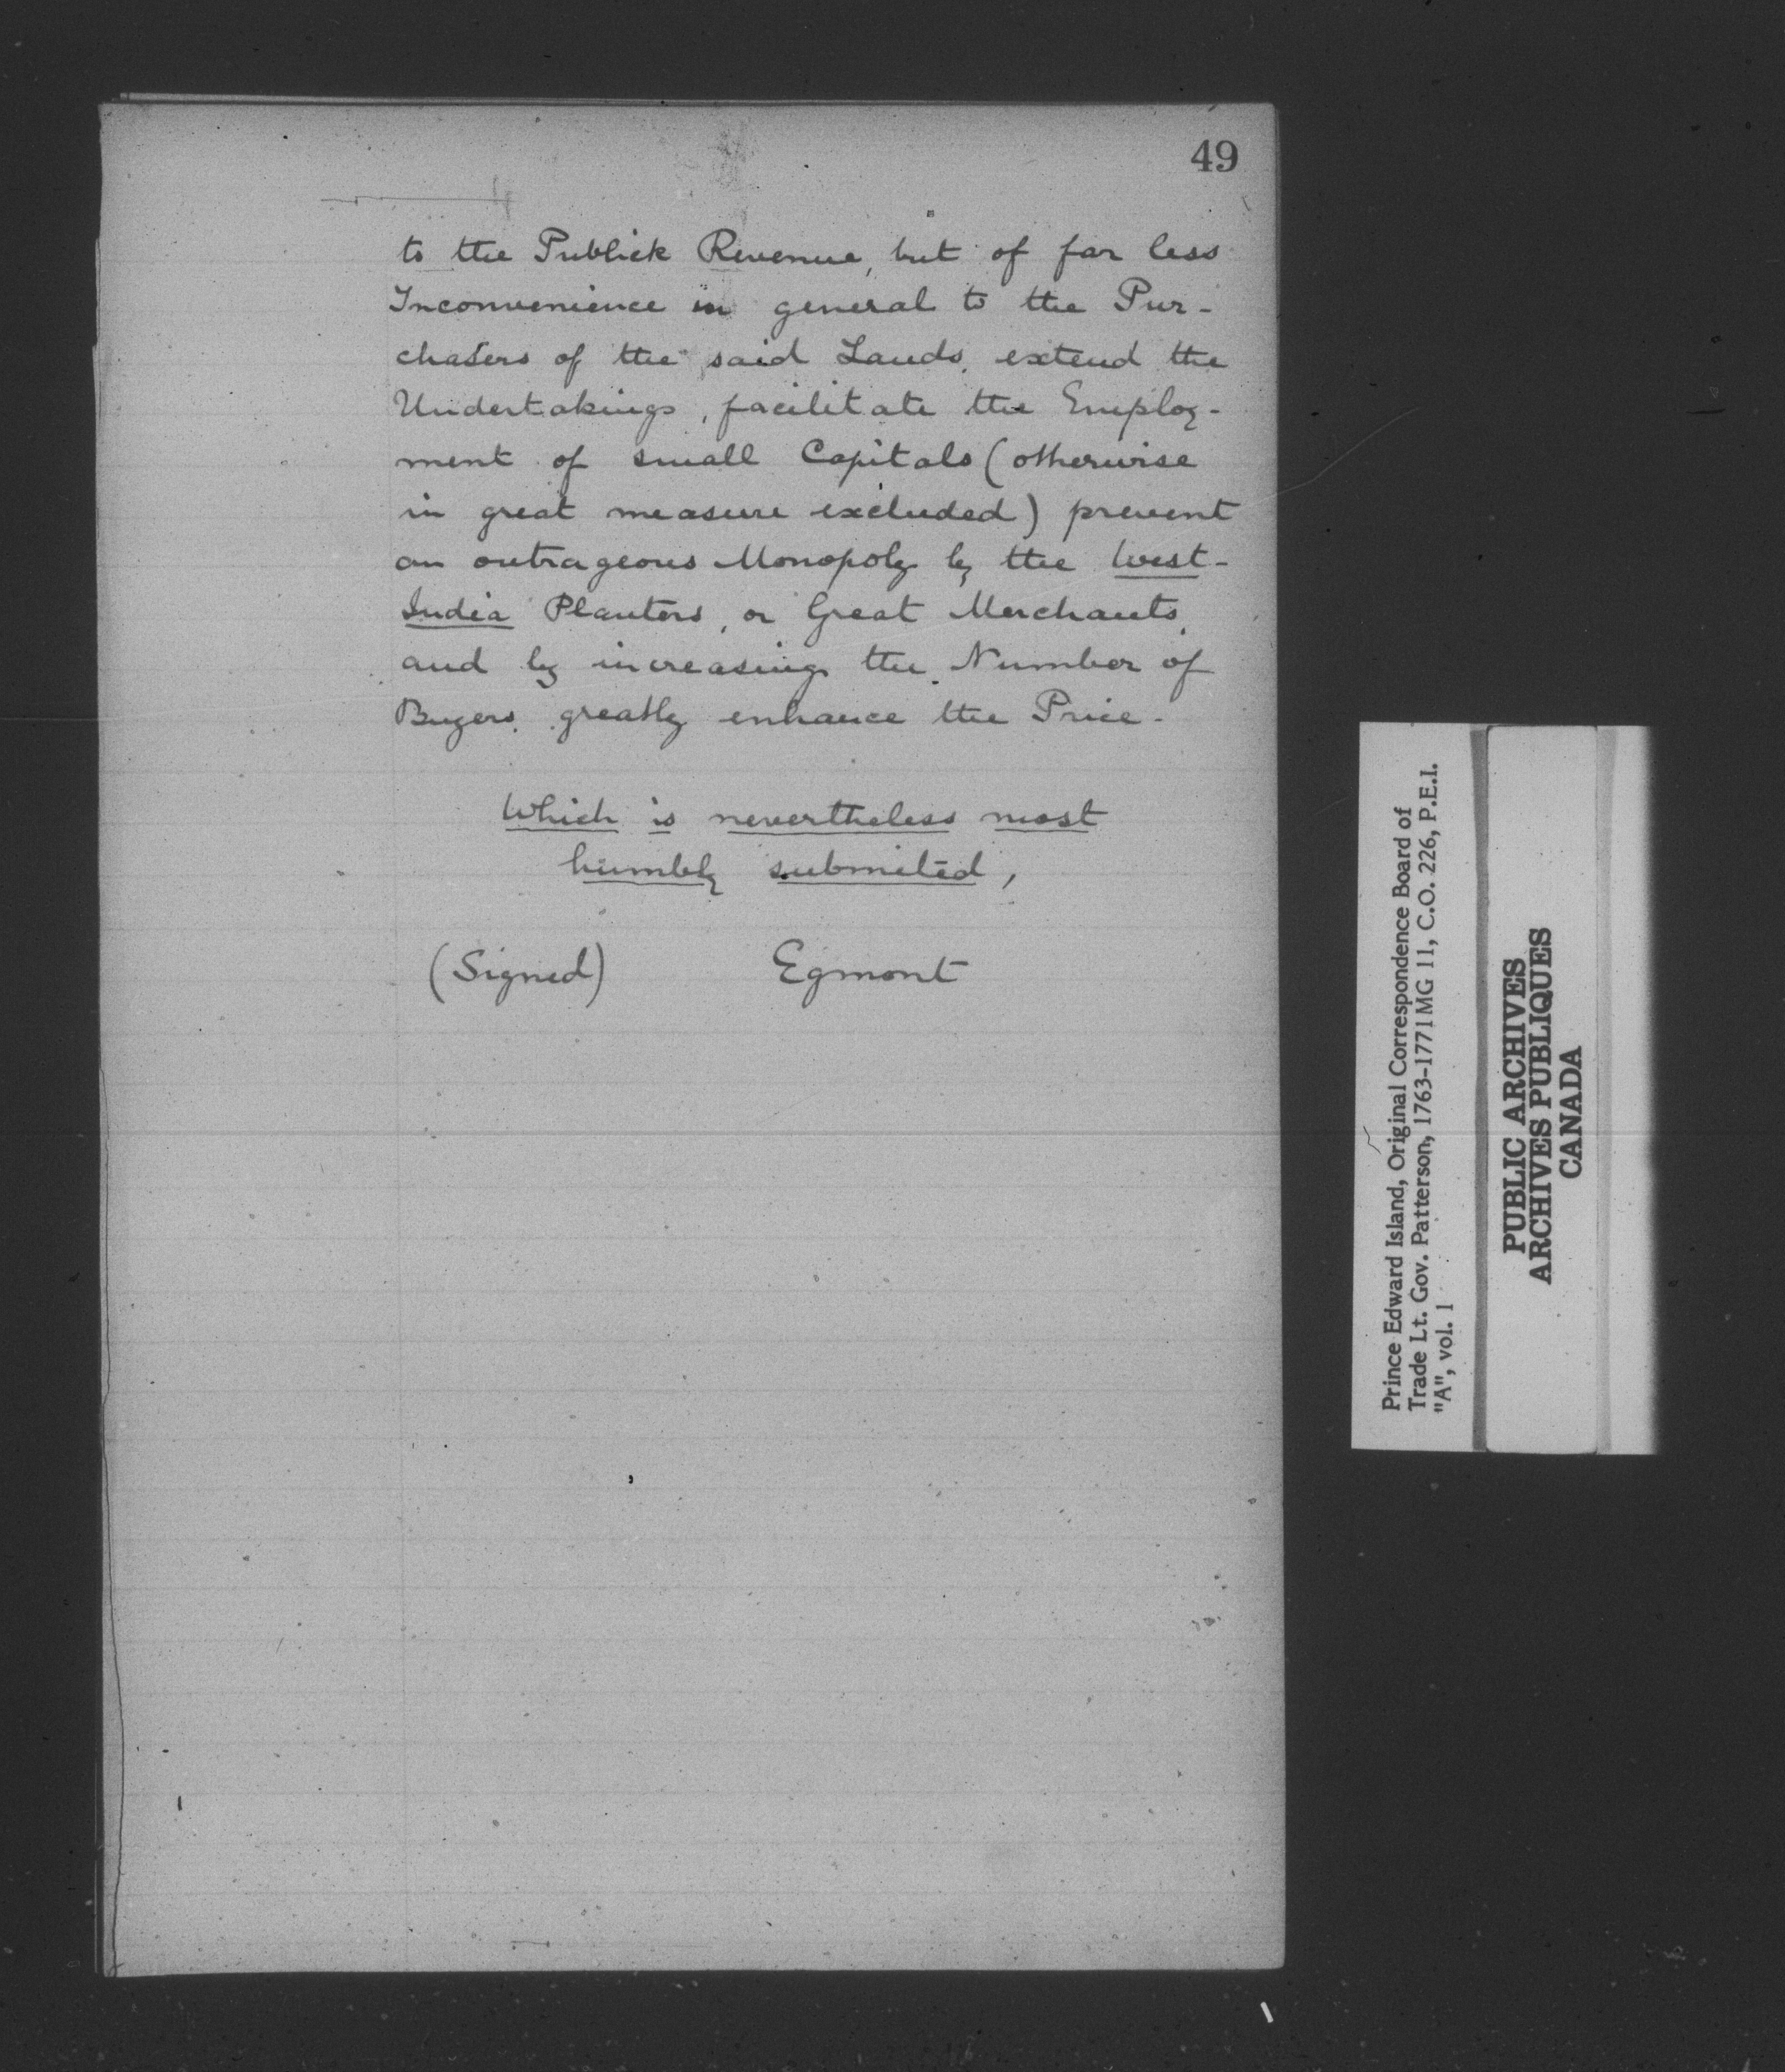 49
to the Publick Revenue, but of far less
Inconvenience in general to the Pur-
chasers of the said Lands, extend the
Undertakings, facilitate the Employ-
ment of small Capitals (otherwise
in great measure excluded) prevent
an outrageous Monopoly by the West-
India Planters, or Great Merchants,
and by increasing the Number of
Buyers, greatly enhance the Price.
Which is nevertheless most
humbly submited,
(Signed) Egmont
Prince Edward Island, Original Correspondence Board of
Trade Lt. Gov. Patterson, 1763-1771 MG 11, C.O. 226, P.E.I.
"A", vol. 1
PUBLIC ARCHIVES
ARCHIVES PUBLIQUES
CANADA